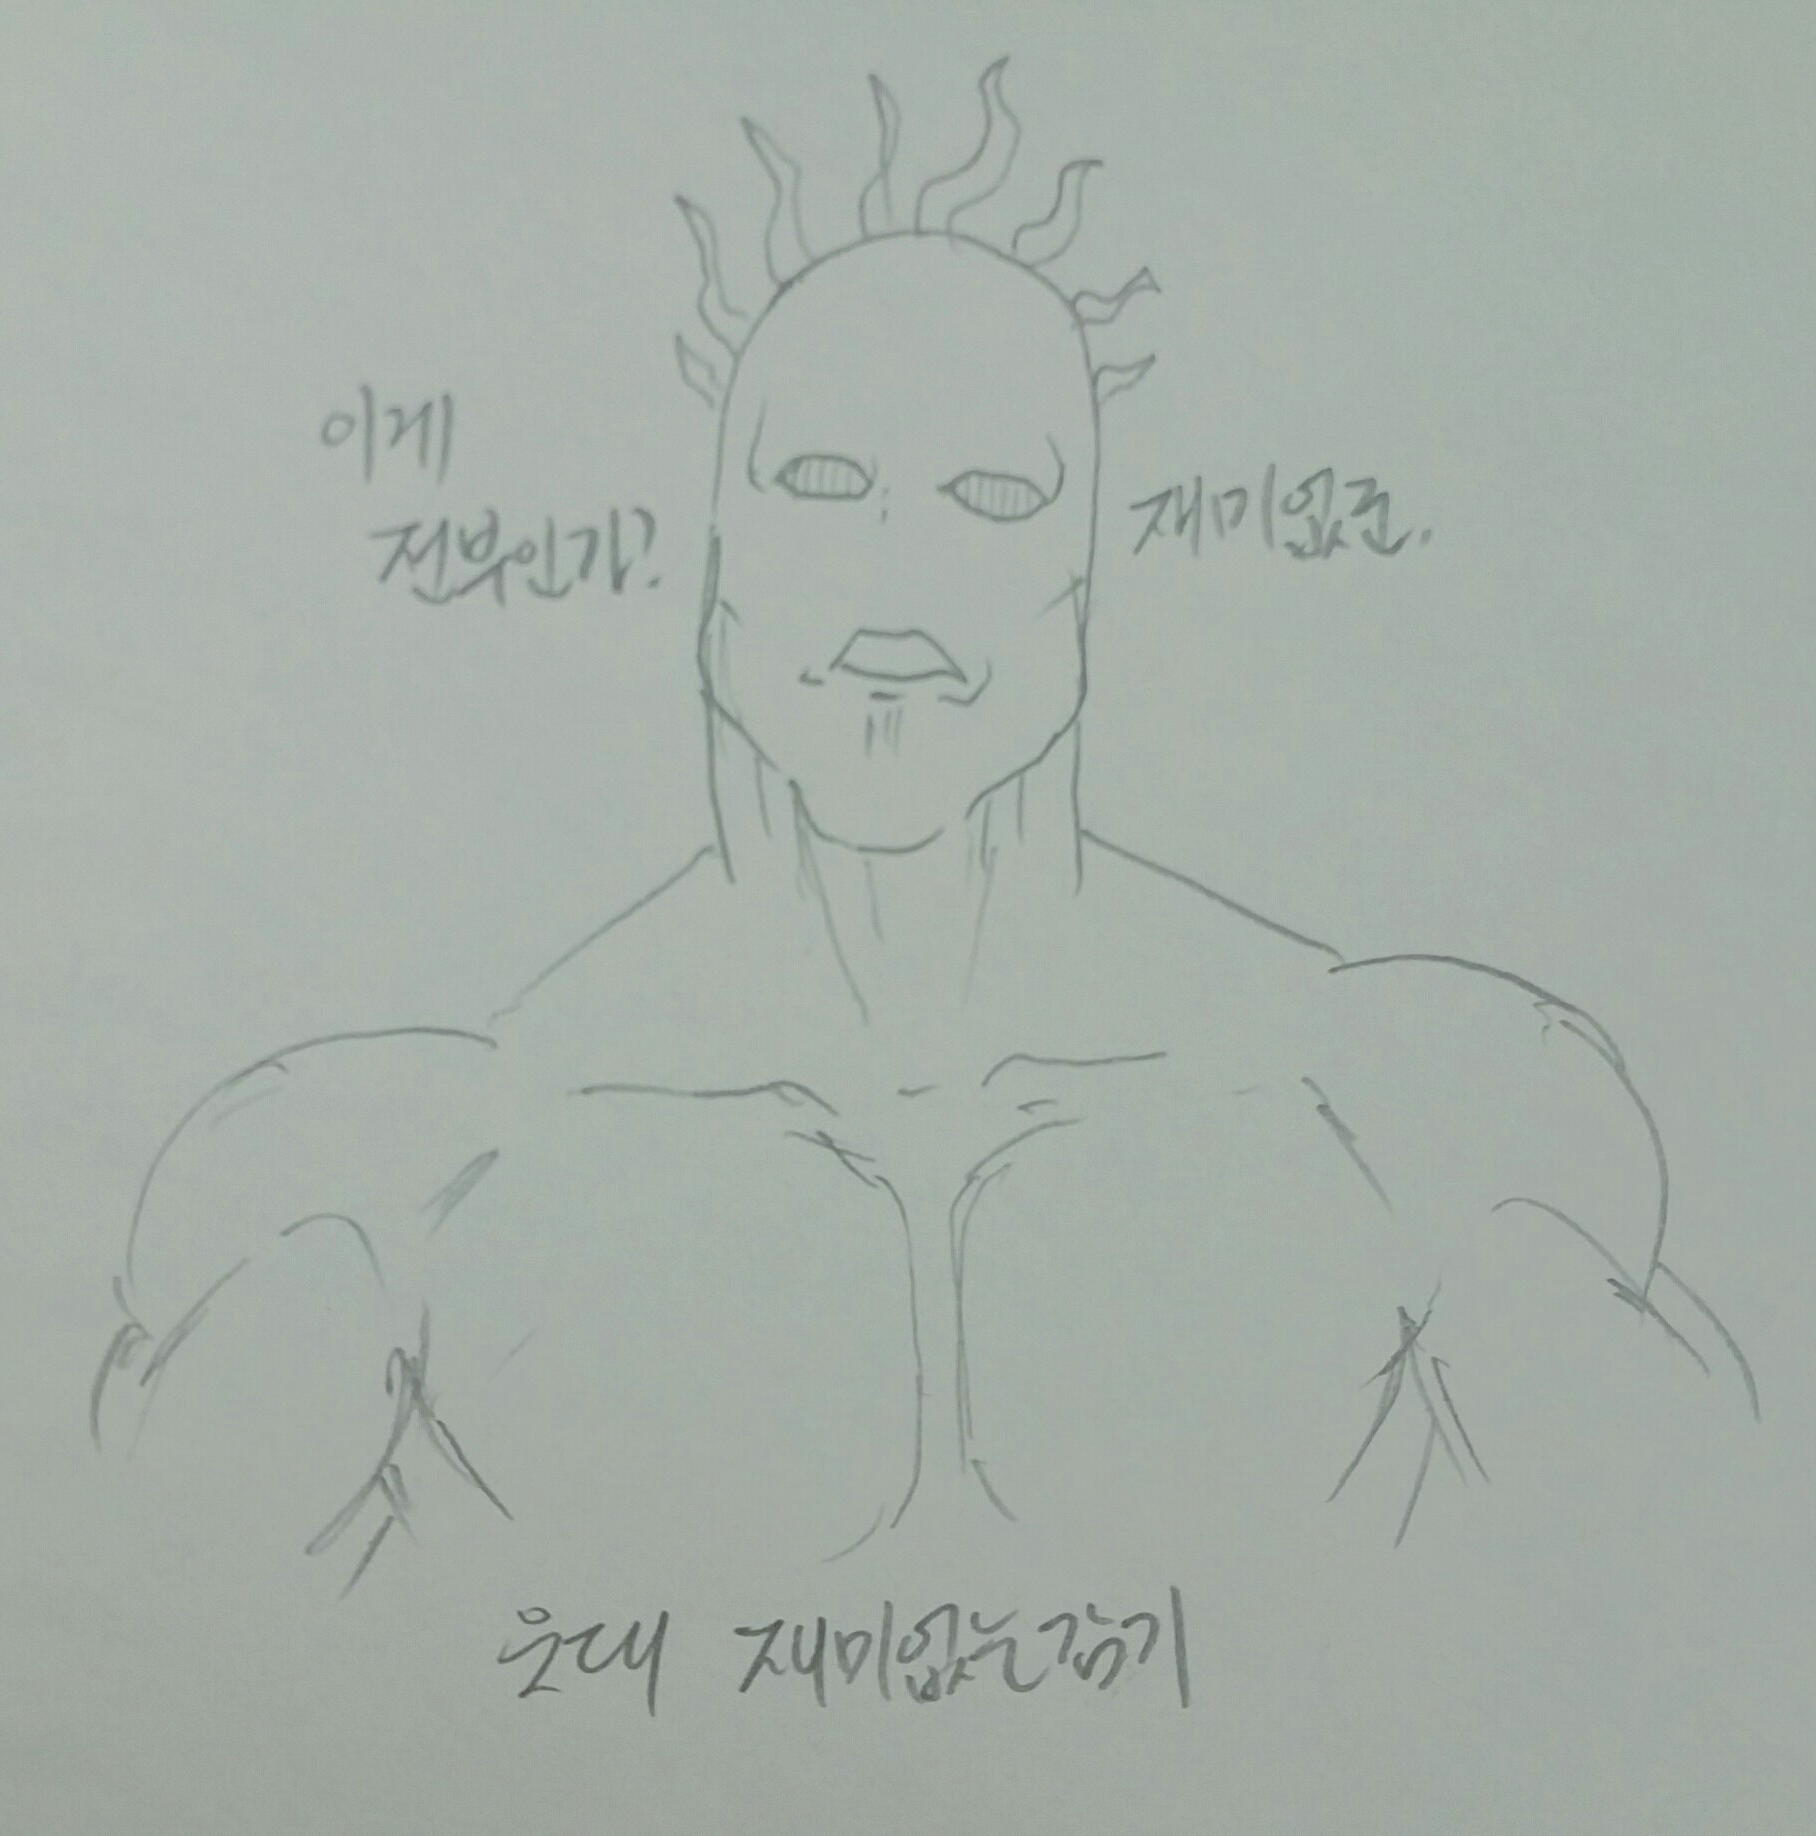 이게
전부인가?
재미없군.
웃대 재미없는감기